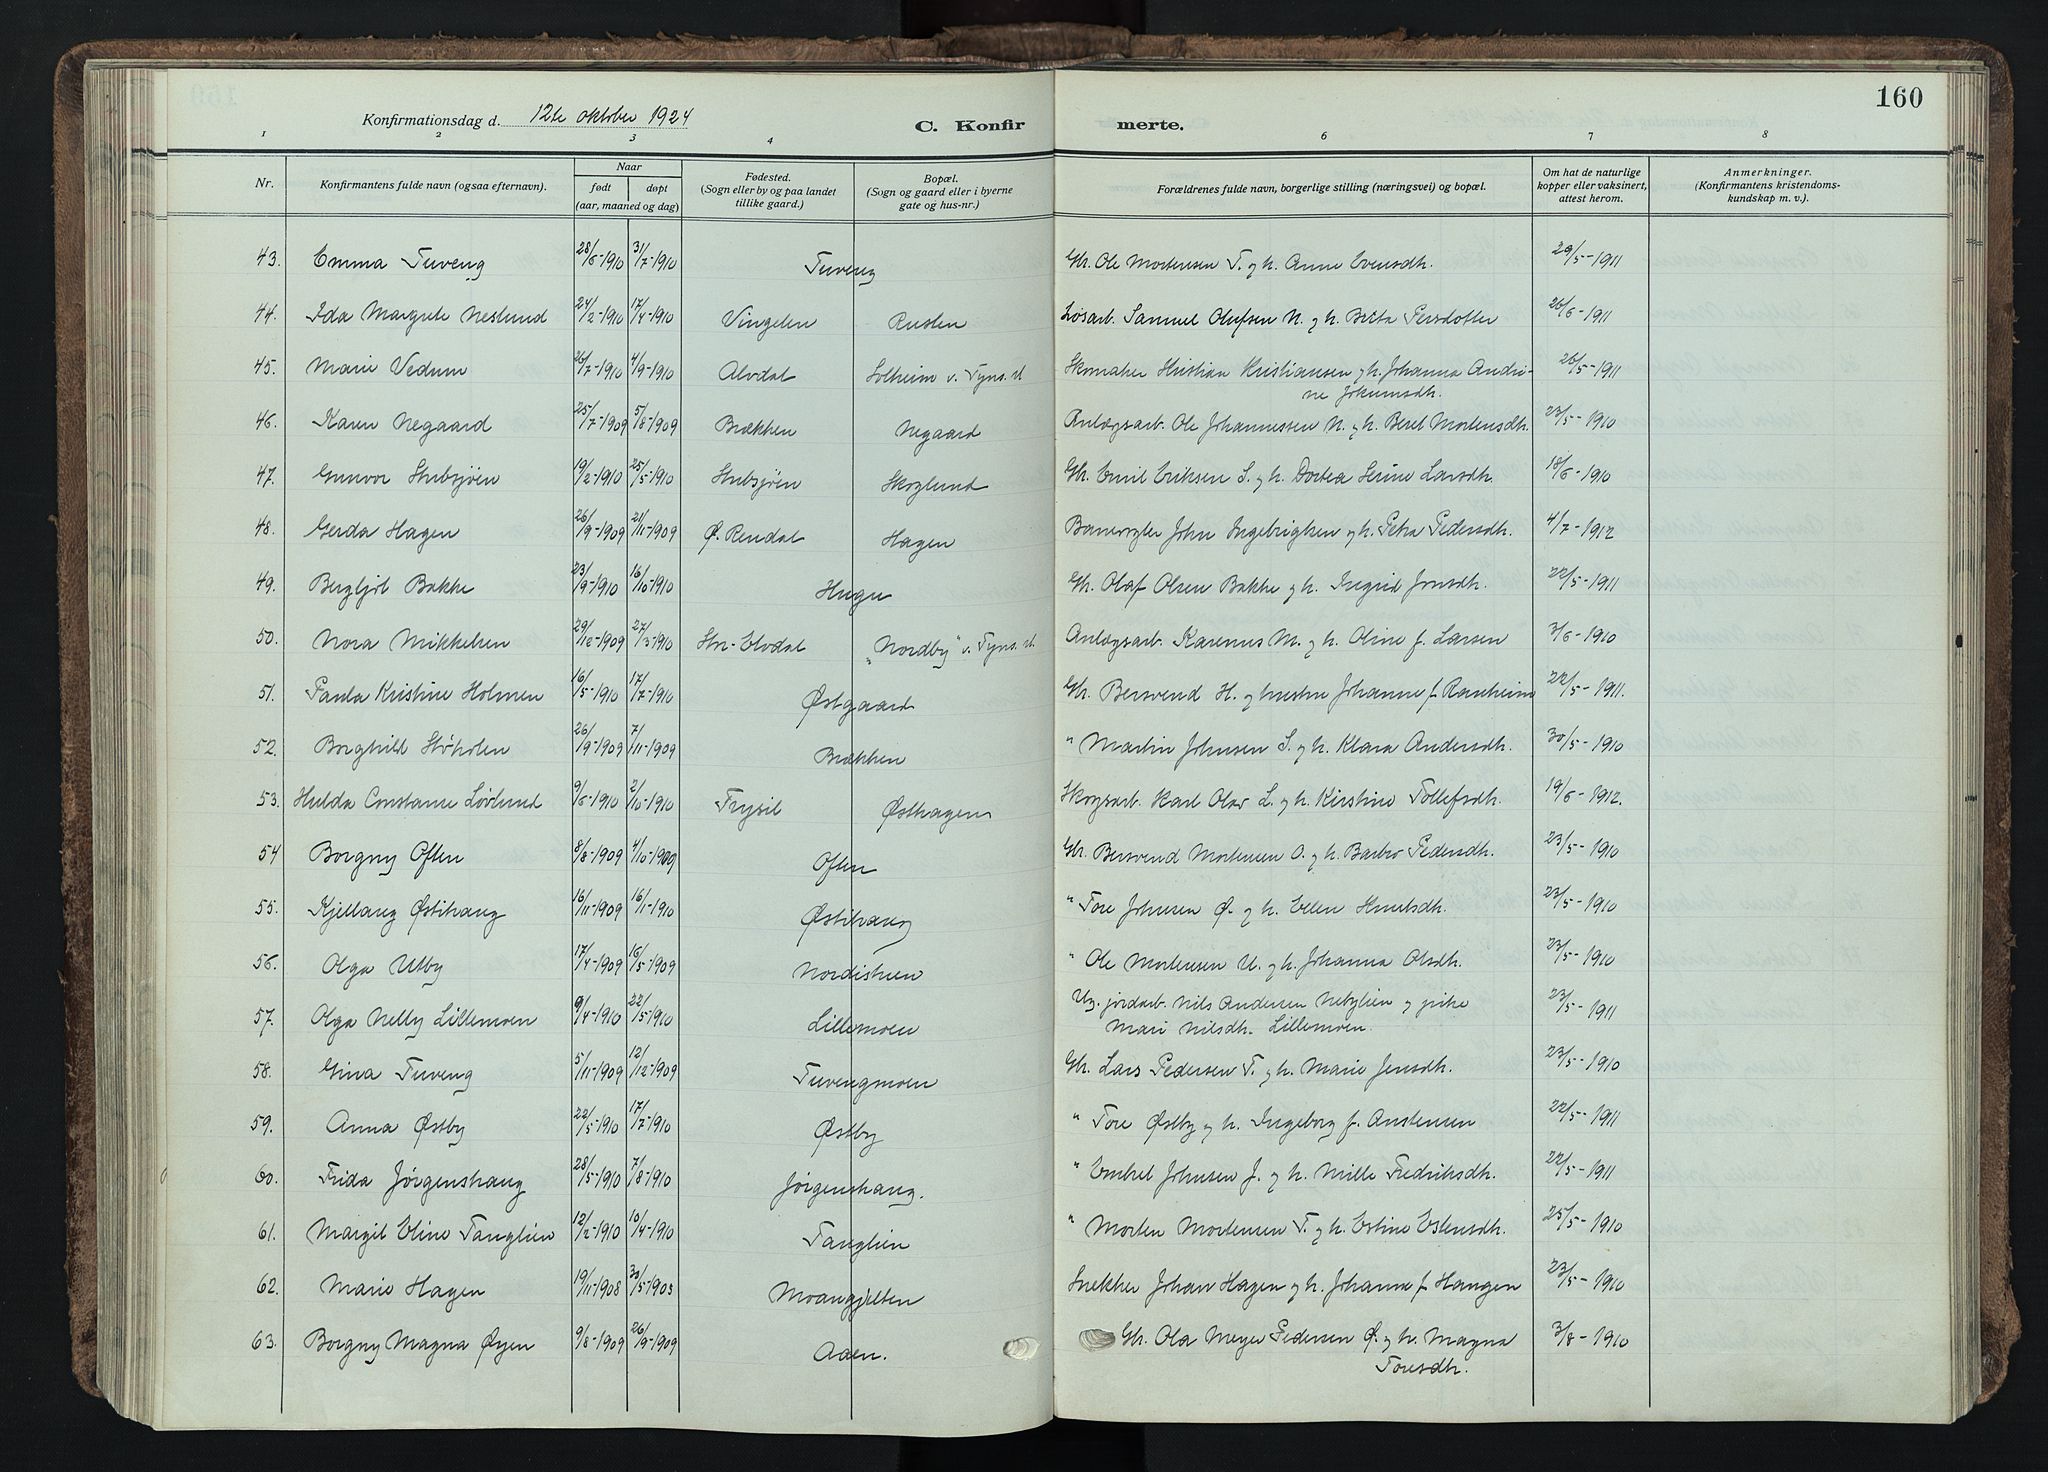 160
Konfirmationsdag d. 12te oktober 1924
C. Konfirmerte.
1 2 3 4 6 7 8
Nr. Konfirmantens fulde navn (ogsaa efternavn). Naar født døpt (aar, maaned og dag) Fødested. (Sogn eller by og paa landet tillike gaard.) Bopæl. (Sogn og gaard eller i byerne gate og hus-nr.) Forældrenes fulde navn, borgerlige stilling (næringsvei) og bopæl. Om hat de naturlige kopper eller vaksinert, attest herom. Anmerkninger. (Konfirmantens kristendoms-kundskap m. v.).
43. Emma Tuveng 28/6-1910 31/7-1910 Tuveng Gbr. Ole Mortensen T. og h. Anne Evensdtr. 29/5-1911
44. Ida Margrete Neslund 24/2-1910 17/4-1910 Vingelen Rusten Løsarb. Samuel Olufsen N. og h. Berta Persdotter 26/6-1911
45. Marie Vedum 26/7-1910 4/9-1910 Alvdal Solheim v. Tyns. st Skomaker Kristian Kristiansen og h. Johanna Andri-
ne Jokumsdtr. 26/5-1911
46. Karen Negaard 25/7-1909 5/8-1909 Brækken Negaard Anlægsarb. Ole Johannessen N. og h. Beret Mortensdtr. 23/5-1910
47. Gunvor Stubsjøen 19/2-1910 25/5-1910 Stubsjøen Skoglund Gbr. Emil Eriksen S. og h. Dortea Serine Larsdtr. 18/6-1910
48. Gerda Hagen 26/9-1909 21/11-1909 Ø. Rendal Hagen Banevogter John Ingebrigtsen og h. Petra Pedersdtr. 4/7-1912
49. Bergljot Bakke 23/9-1910 16/10-1910 Hugu Gbr. Olaf Olsen Bakke og h. Ingrid Jonsdtr. 22/5-1911
50. Nora Mikkelsen 29/12-1909 27/3-1910 Str-Elvdal "Nordby" v. Tyns. st. Anlægsarb. Karenus M. og h. Oline f. Larsen 3/6-1910
51. Paula Kristine Holmen 16/5-1910 17/7-1910 Østgaard Gbr. Bersvend H. og hustru Johanne f. Ranheim 22/5-1911.
52. Borghild Støholen 26/9-1909 7/11-1909 Brækken " Martin Johnsen S. og h. Klara Andersdtr. 30/5-1910
53. Hulda Constanse Lørlund 9/6-1910 2/10-1910 Trysil Østhagen Skogsarb. Karl Olav L. og h. Kirstine Tollefsdtr. 19/6-1912.
54 Borgny Often 8/8-1909 4/10-1909 Often Gbr. Bersvend Mortensen O. og h. Barbro Pedersdtr. 23/5-1910
55. Kjellaug Østihaug 16/11-1909 16/1-1910 Østihaug " Tore Johnsen Ø. og h. Ellen Knutsdtr. 23/5-1910
56. Olga Utby 17/4-1909 16/5-1909 Nordistuen " Ole Mortensen U. og h. Johanna Olsdtr. 23/5-1910
57. Olga Nelly Lillemoen 9/4-1910 22/5-1910 Lillemoen Ug. jordarb. Nils Andersen Nebylien og pike
Mari Nilsdtr. Lillemoen. 23/5-1911
58. Gina Tuveng 5/11-1909 12/12-1909 Tuvengmoen Gbr. Lars Pedersen T. og h. Marie Jensdtr. 23/5-1910
59. Anna Østby 22/5-1910 17/7-1910 Østby " Tore Østby og h. Ingeborg f. Anstensen 22/5-1911
60. Frida Jørgenshaug 28/5-1910 7/8-1910 Jørgenshaug. " Embret Johnsen J. og h. Mille Fredriksdtr. 22/5-1911
61. Margit Eline Tanglien 12/2-1910 10/4-1910 Tanglien " Morten Mortensen T. og h. Estine Estensdtr. 25/5-1910
62. Marie Hagen 19/11-1908 30/5-1909 Moangjelten Snekker Johan Hagen og h. Johanne f. Haugen 23/5-1910
63. Borgny Magna Øyen 9/8-1909 26/9-1909 Aaen. Gbr. Ola Meyer Pedersen Ø. og h. Magna
Toresdtr. 3/8-1910